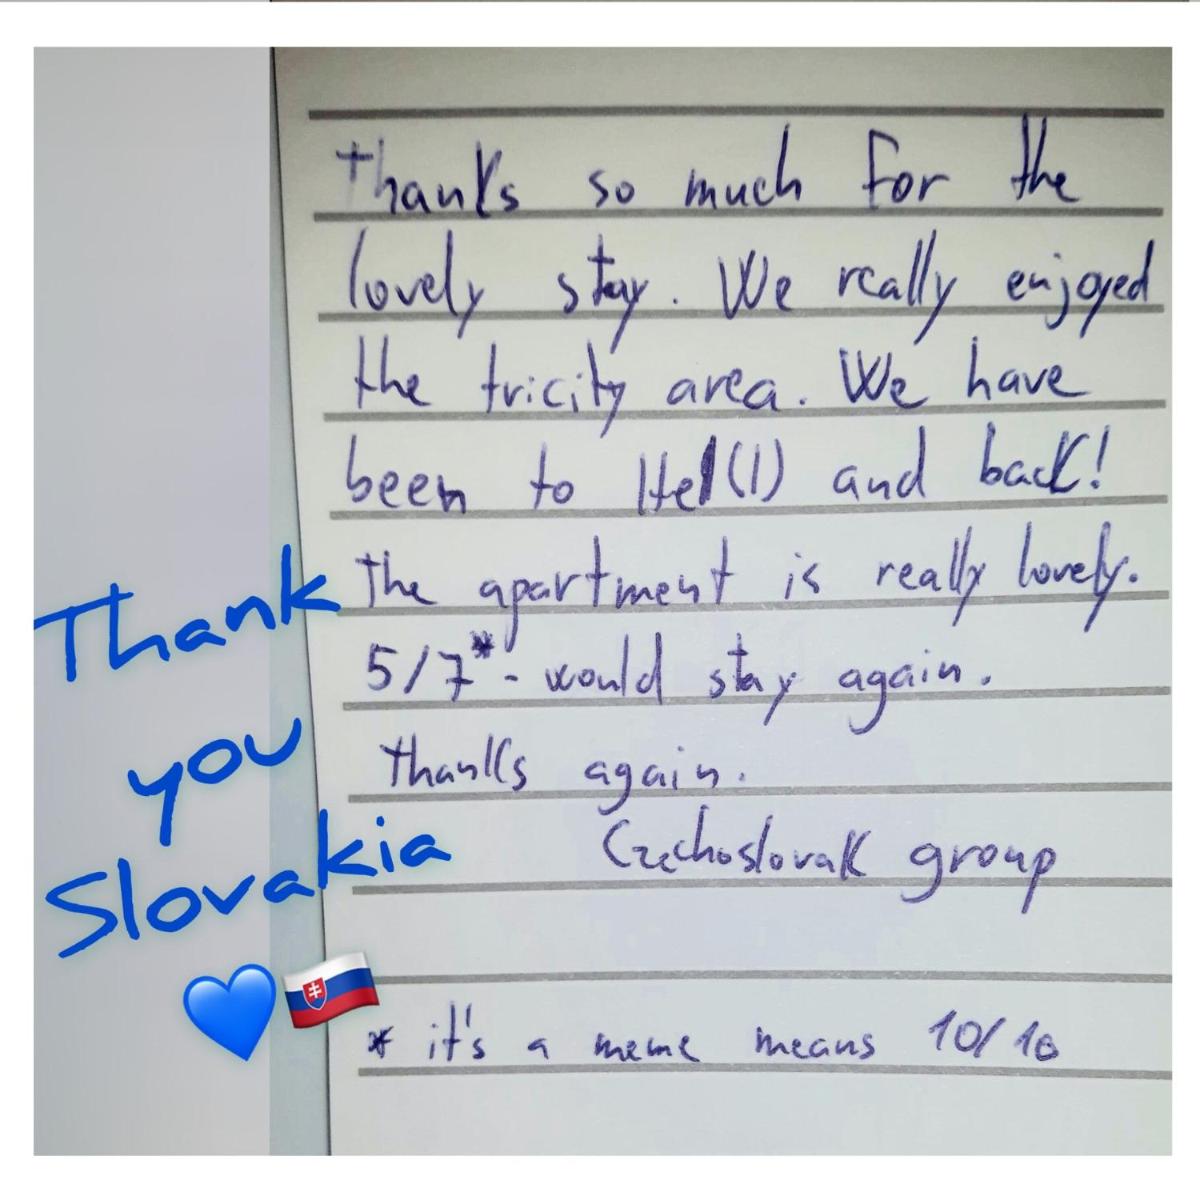 Thanks so much for the
lovely stay. We really enjoyed
the tricity area. We have
been to Hel(l) and back!
The apartment is really lovely.
5/7* - would stay again.
Thanks again.
Czechoslovak group
* it's a meme means 10/10
Thank
you
Slovakia